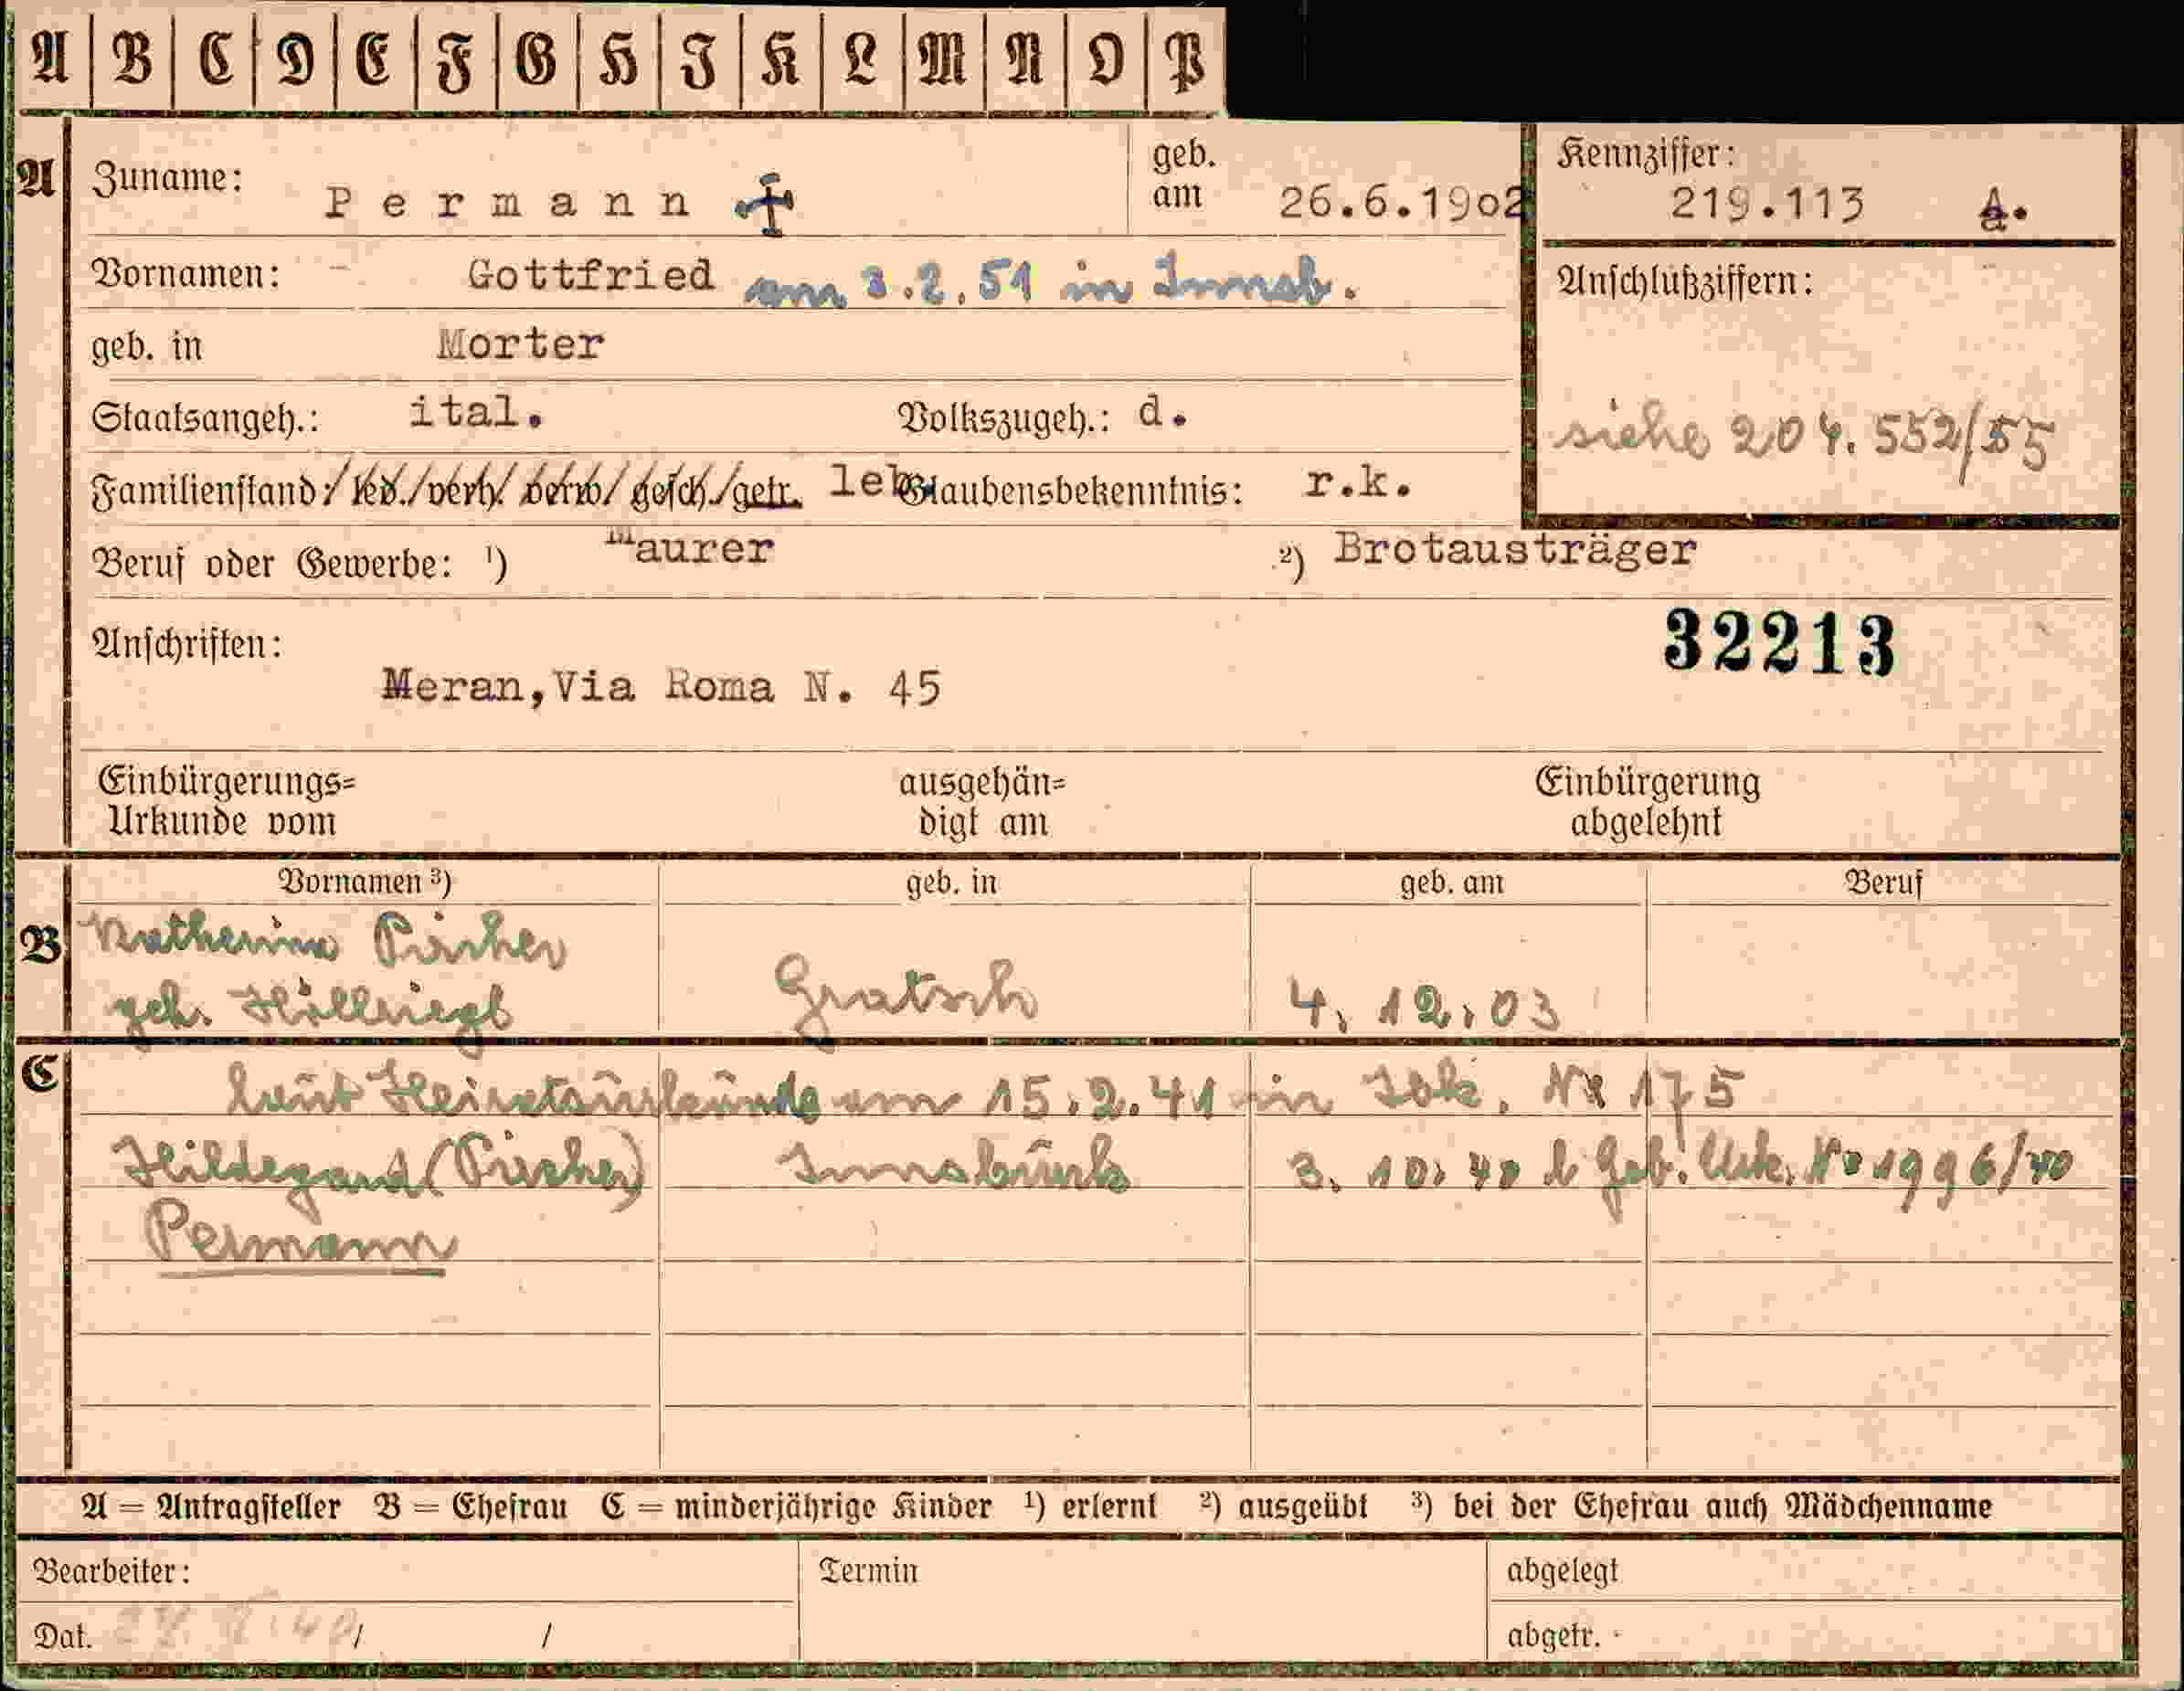 A B C D E F G H I K L M N O P
A Zuname: Permann geb. am 26.6.1902 Kennziffer: 219.113 A.
Vornamen: Gottfried am 3.2.51 in Innsb. Anschlußziffern:
geb. in Morter
Staatsangeh.: ital. Volkszugeh.: d. siehe 204.552/55
Familienstand: led./verh./verw/gesch./getr. Glaubensbekenntnis: r.k.
Beruf oder Gewerbe: ¹) Maurer ²) Brotausträger
32213
Anschriften:
Meran,Via Roma N. 45
Einbürgerungs= ausgehän= Einbürgerung
Urkunde vom digt am abgelehnt
Vornamen ³) geb. in geb. am Beruf
B Katherina Pircher
geb. Höllriegl Gratsch 4. 12. 03
C laut Heiratsurkunde am 15.2.41 in Ibk. Nr 175
Hildegard (Pircher) Innsbruck 3. 10. 40 l Geb. Urk. Nr 1996/40
Permann
A = Antragsteller B = Ehefrau C = minderjährige Kinder ¹) erlernt ²) ausgeübt ³) bei der Ehefrau auch Mädchenname
Bearbeiter: Termin abgelegt
Dat. / / abgetr.